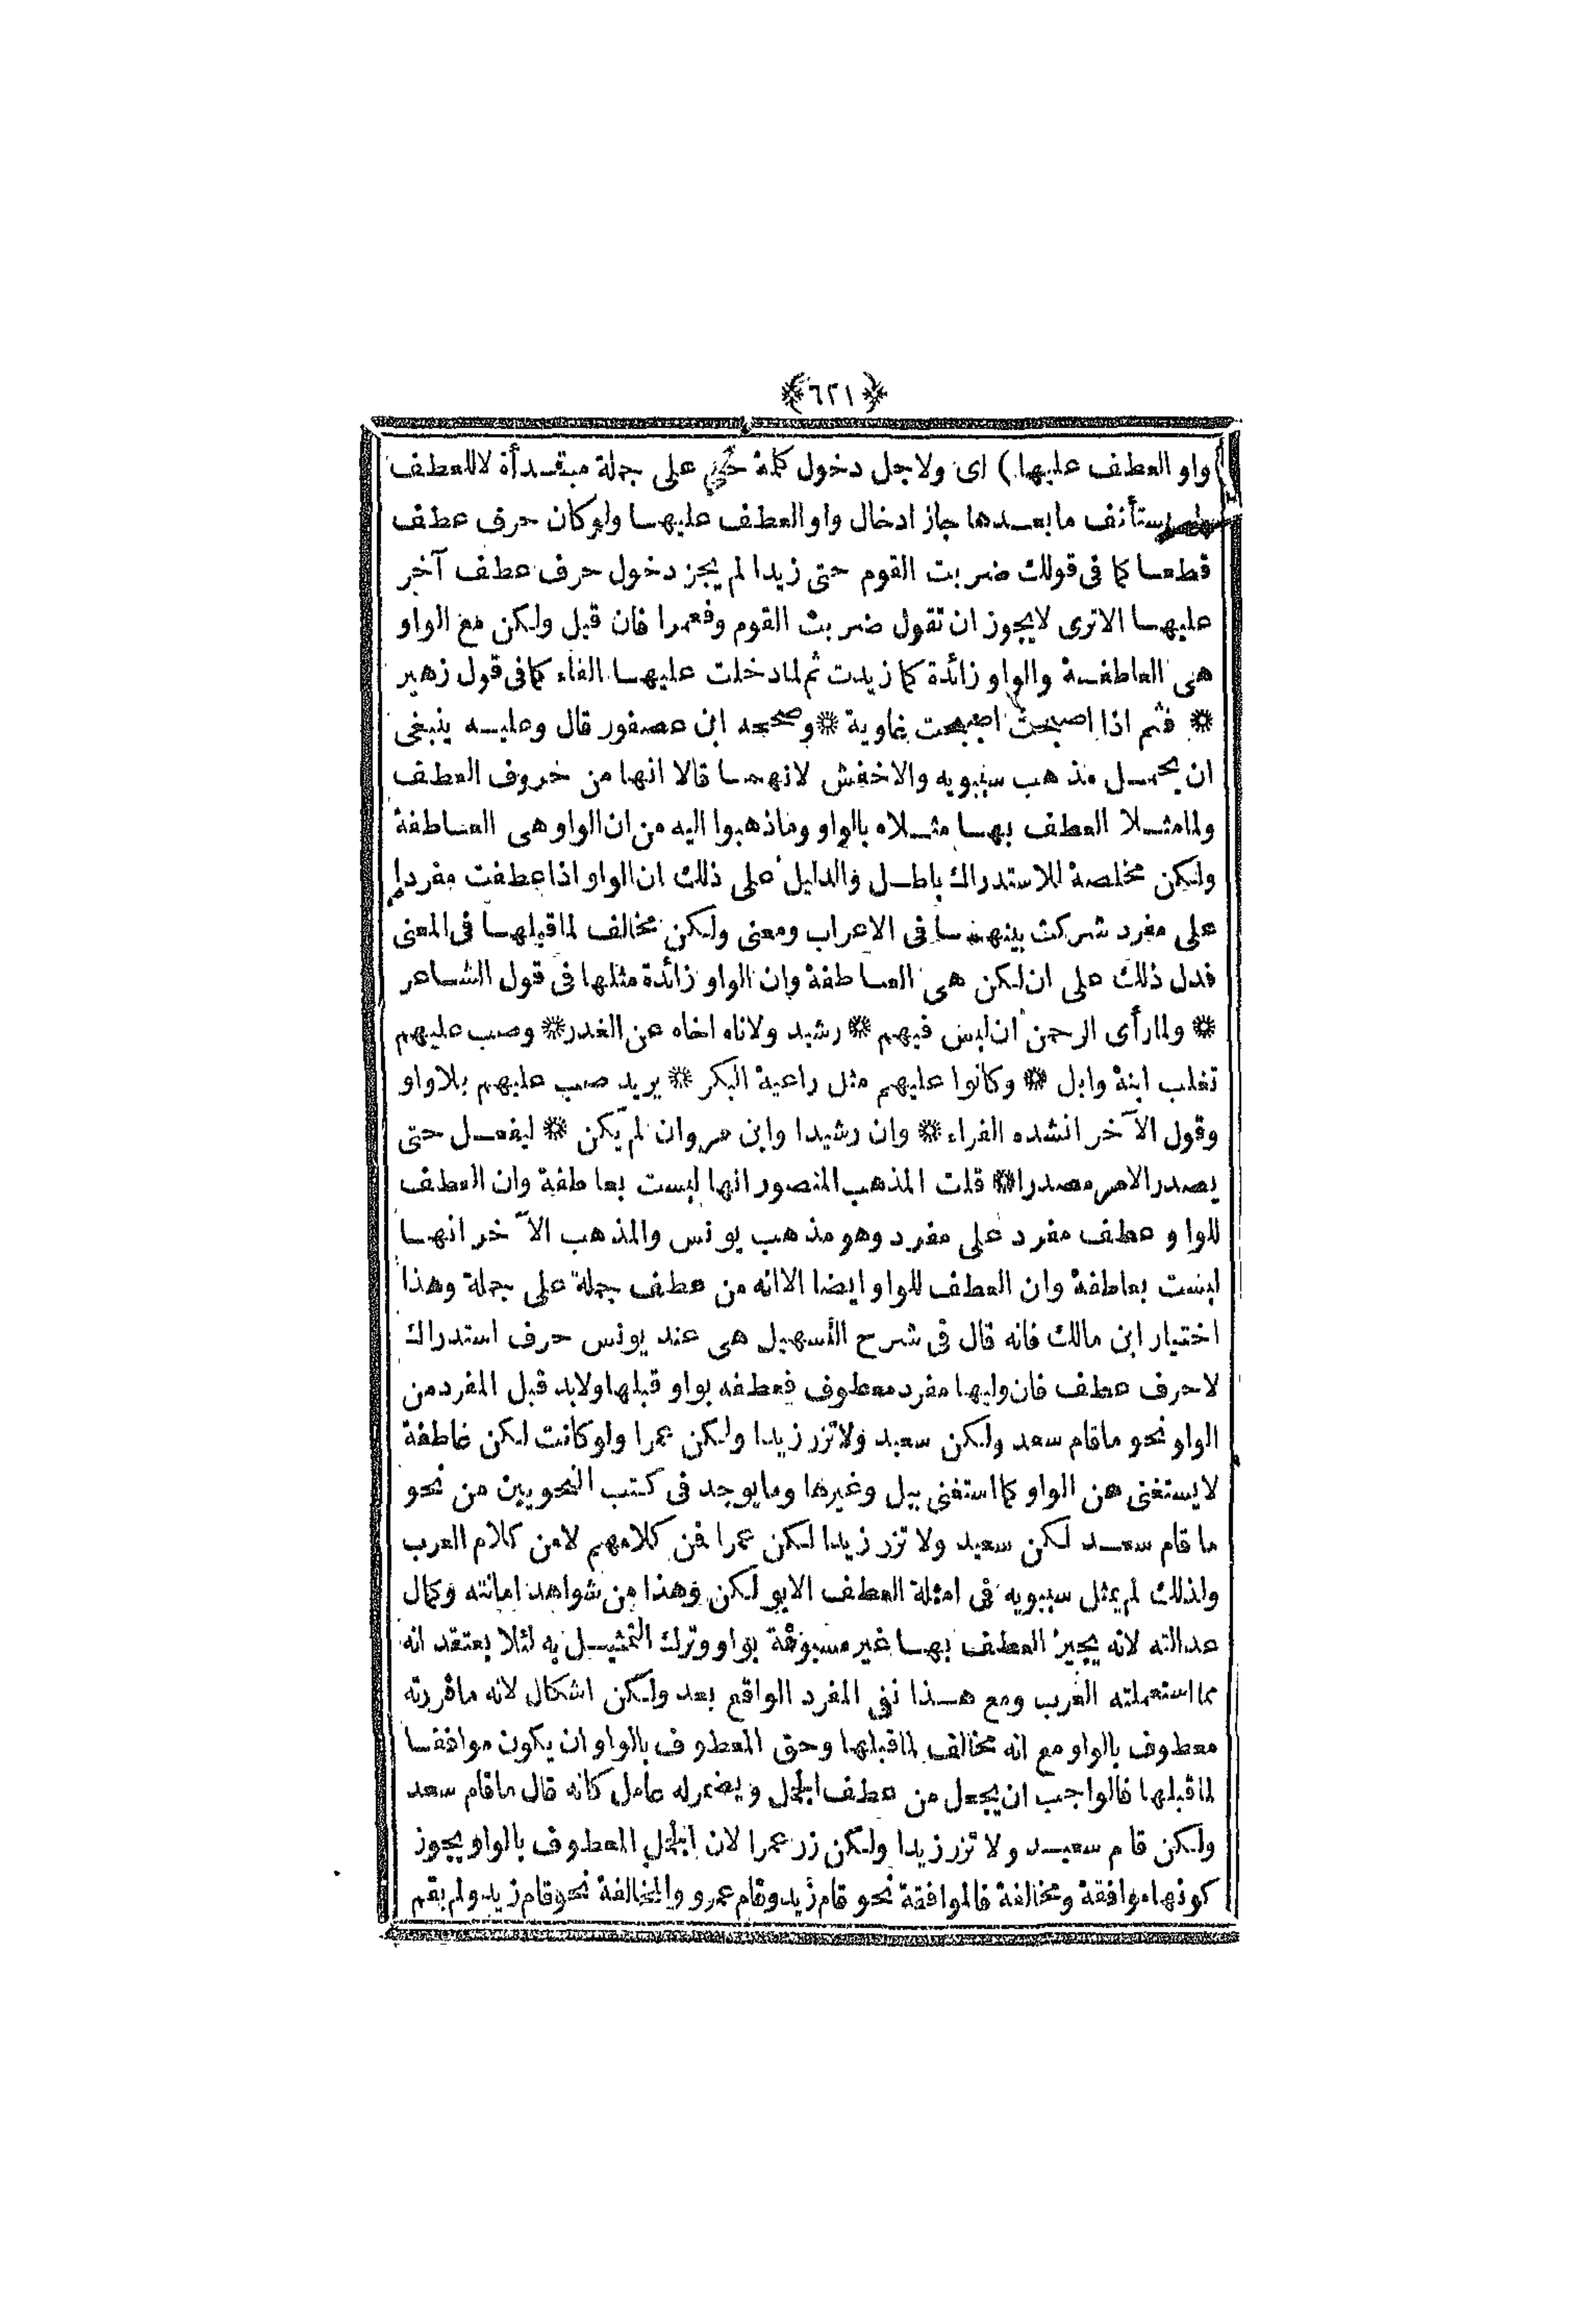 ﴿ ٦٢١ ﴾
واو العطف عليها) اى ولاجل دخول كلمة حتى على جملة مبتدأة لاللعطف
يستأنف مابعدها جاز ادخال واو العطف عليها ولوكان حرف عطف
قطعا كما فى قولك ضربت القوم حتى زيدا لم يجز دخول حرف عطف آخر
عليها الاترى لايجوز ان تقول ضربت القوم وفعمرا فان قيل ولكن مع الواو
هى العاطفة والواو زائدة كما زيدت ثم لمادخلت عليها الفاء كمافى قول زهير
* فثم اذا اصبحت اصبحت غاوية * وصححه ابن عصفور قال وعليه ينبغى
ان يحمل مذهب سيبويه والاخفش لانهما قالا انها من حروف العطف
ولمامثلا العطف بها مثلاه بالواو وماذهبوا اليه من ان الواو هى العاطفة
ولكن مخلصة للاستدراك باطل والدليل على ذلك ان الواو اذاعطفت مفردا
على مفرد شركت بينهما فى الاعراب ومعنى ولكن مخالف لماقبلها فى المعنى
فدل ذلك على ان لكن هى العاطفة وان الواو زائدة مثلها فى قول الشاعر
* ولمارأى الرحمن ان ليس فيهم * رشيد ولاناه اخاه عن الغدر * وصب عليهم
تغلب ابنة وايل * وكانوا عليهم مثل راغية البكر * يريد صب عليهم بلاواو
وقول الآخر انشده الفراء * وان رشيدا وابن مروان لم يكن * ليفعل حتى
يصدر الامر مصدرا * قلت المذهب المنصور انها ليست بعاطفة وان العطف
للواو عطف مفرد على مفرد وهو مذهب يونس والمذهب الآخر انها
ليست بعاطفة وان العطف للواو ايضا الاانه من عطف جملة على جملة وهذا
اختيار ابن مالك فانه قال فى شرح التسهيل هى عند يونس حرف استدراك
لاحرف عطف فان وليها مفرد معطوف فعطفه بواو قبلها ولابد قبل المفرد من
الواو نحو ماقام سعد ولكن سعيد ولاتزر زيدا ولكن عمرا ولوكانت لكن عاطفة
لايستغنى عن الواو كمااستغنى ببل وغيرها ومايوجد فى كتب النحويين من نحو
ما قام سعد لكن سعيد ولا تزر زيدا لكن عمرا فمن كلامهم لامن كلام العرب
ولذلك لم يمثل سيبويه فى امثلة العطف الابو لكن وهذا من شواهد امانته وكمال
عدالته لانه يجيز العطف بها غير مسبوقة بواو وترك التمثيل به لئلا يعتقد انه
مما استعملته العرب ومع هذا نفى المفرد الواقع بعد ولكن اشكال لانه ماقررته
معطوف بالواو مع انه مخالف لماقبلها وحق المعطوف بالواو ان يكون موافقا
لماقبلها فالواجب ان يجعل من عطف الجمل ويضمر له عامل كانه قال ماقام سعد
ولكن قام سعيد ولا تزر زيدا ولكن زر عمرا لان الجمل المعطوف بالواو يجوز
كونها موافقة ومخالفة فالموافقة نحو قام زيد وقام عمرو والمخالفة نحو قام زيد ولم يقم